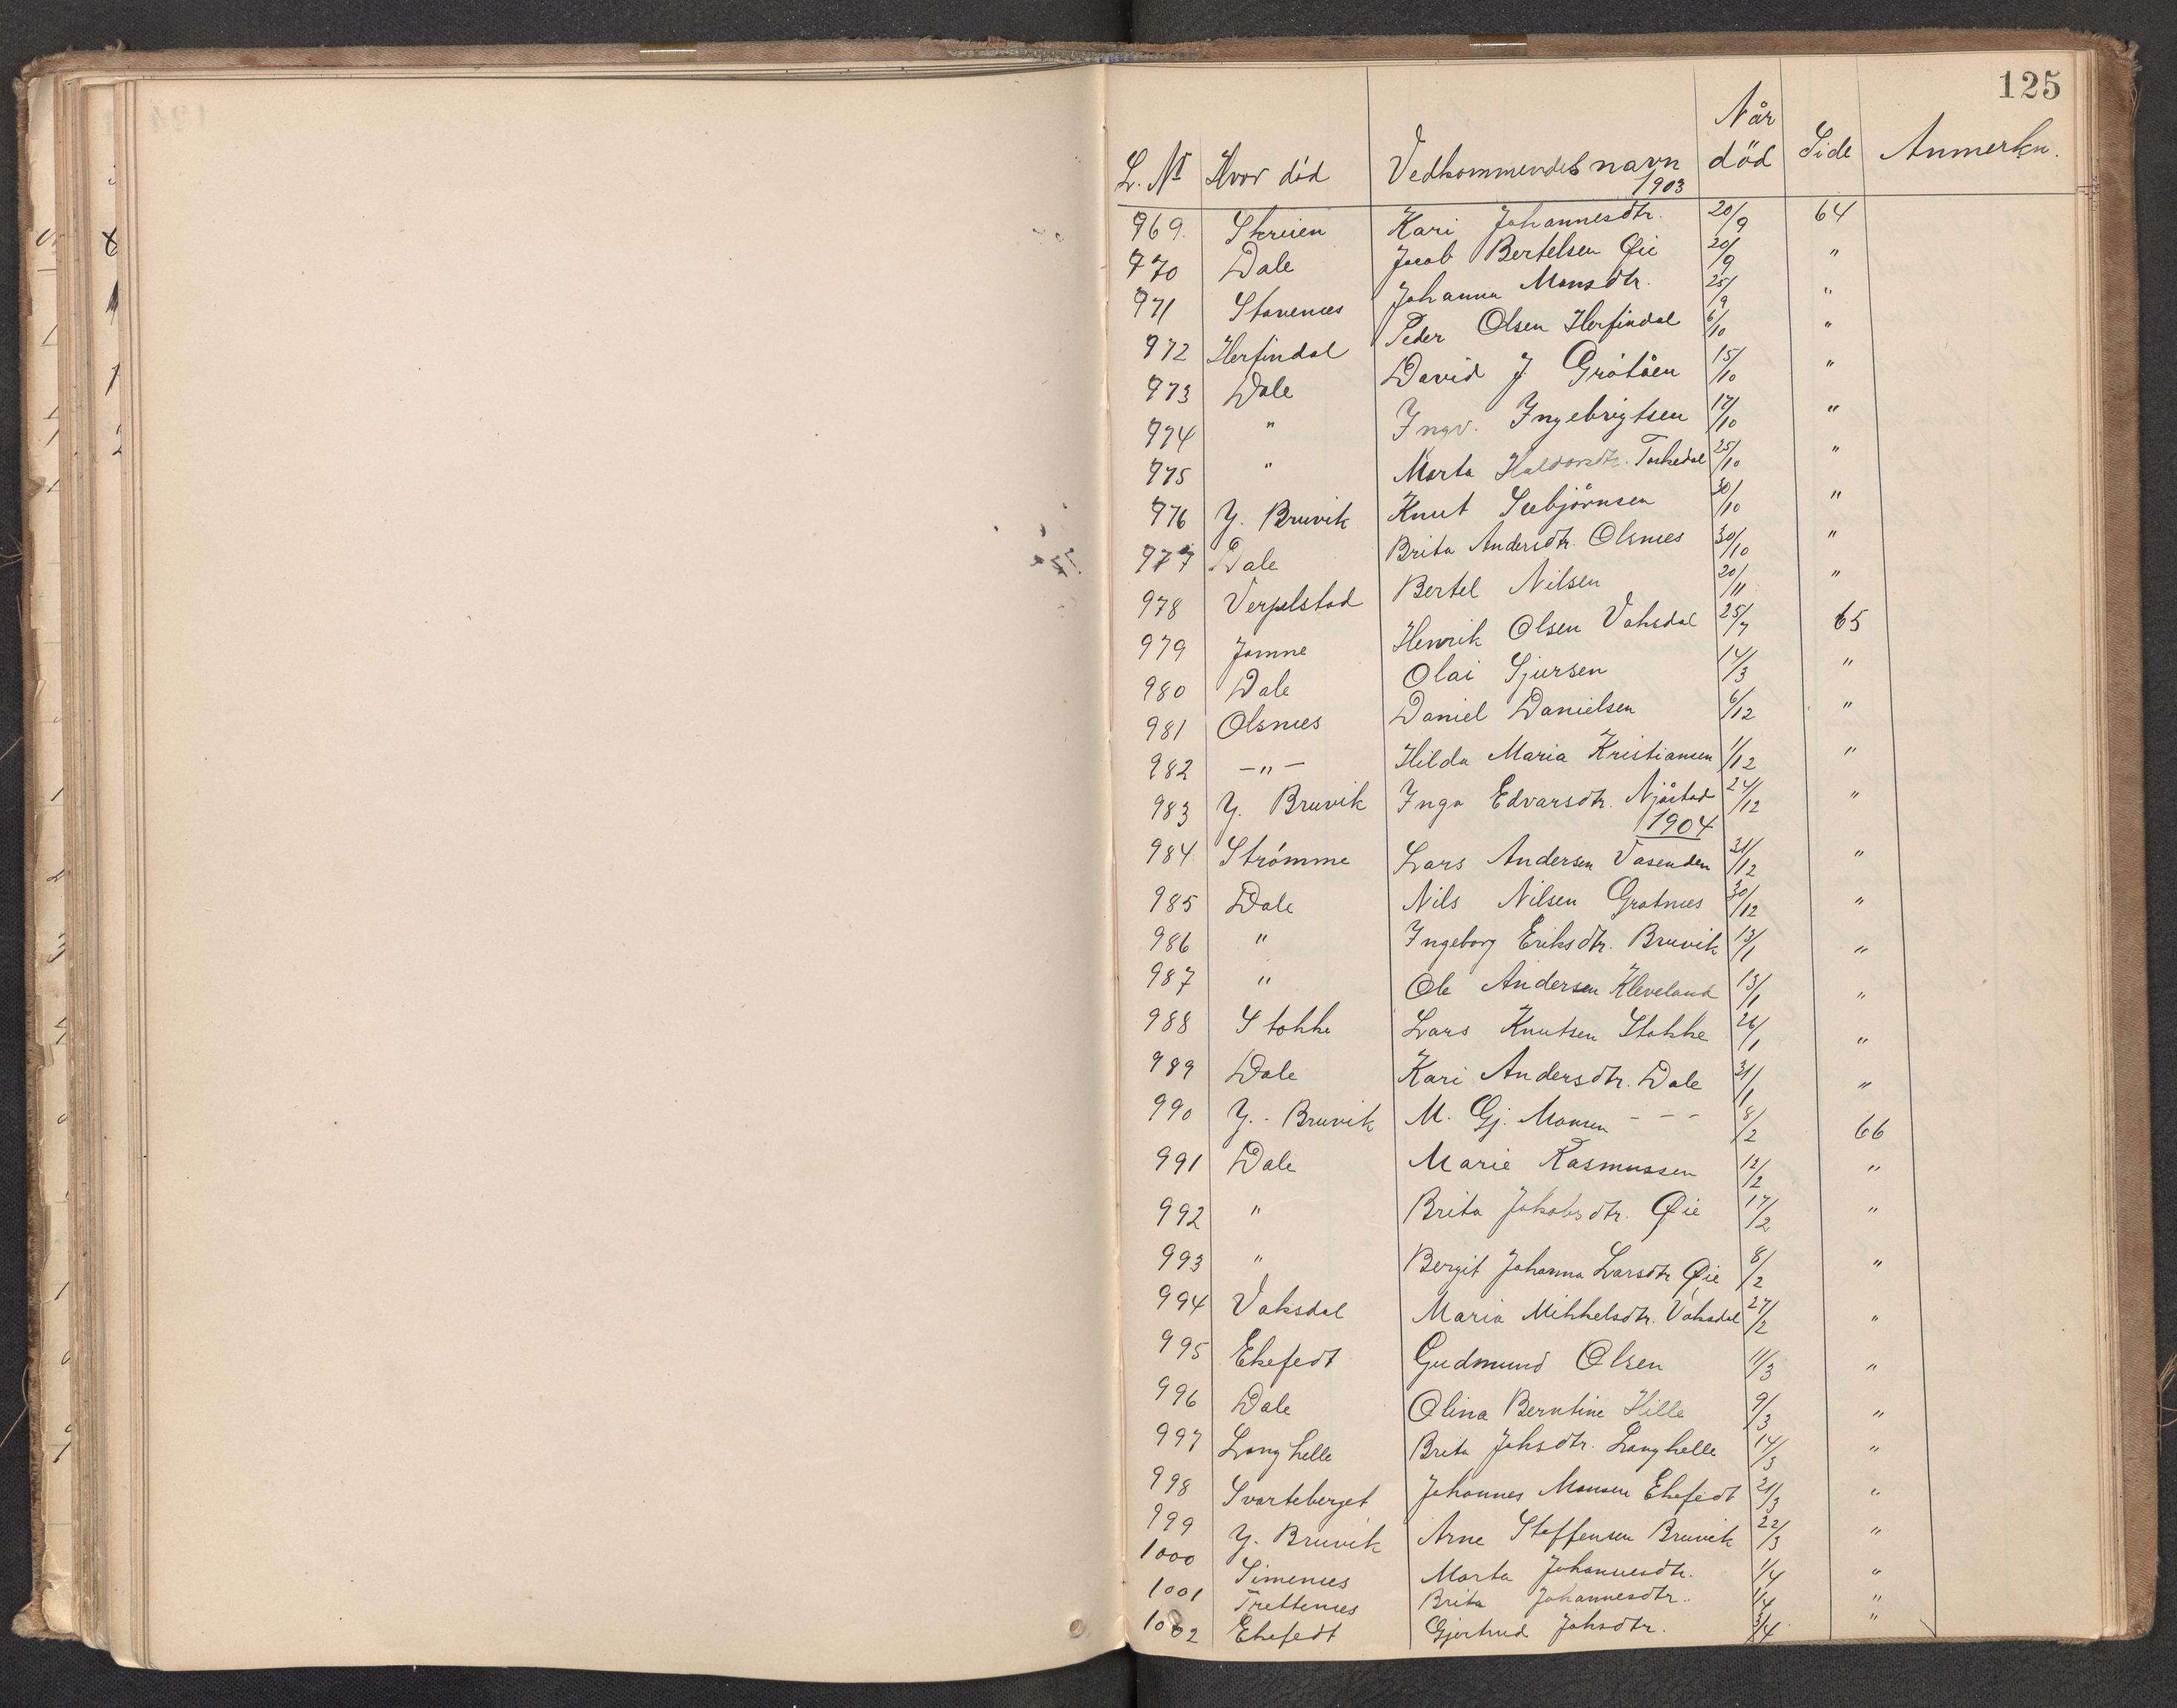 125
L. № Hvor død Vedkommendes navn Når død Side Anmerkn.
1903
969. Skreien Kari Johannesdtr. 20/9 64
970 Dale Jacob Bertelsen Øie 20/9 "
971 Stavenæs Johanna Monsdtr. 25/9 "
972 Herfindal Peder Olsen Herfindal 6/10 "
973 Dale David J. Gråtåen 15/10 "
974 " Ingv. Ingebrigtsen 17/10 "
975 " Marta Haldorsdtr. Toskedal 25/10 "
976 Y. Bruvik Knut Sebjørnsen 30/10 "
977 Dale Brita Andersdtr. Olsnes 30/10 "
978 Verpelstad Bertel Nilsen 20/11 "
979 Jamne Henrik Olsen Vaksdal 25/7 65
980 Dale Olai Sjursen 14/3 "
981 Olsnæs Daniel Danielsen 6/12 "
982 - " - Hilda Maria Kristiansen 1/12 "
983 Y. Bruvik Inga Edvarsdtr. Njåstad 24/12 "
1904
984 Strømme Lars Andersen Vasenden 31/12 "
985 Dale Nils Nilsen Grotnæs 30/12 "
986 " Ingeborg Eriksdtr. Bruvik 13/1 "
987 " Ole Andersen Kleveland 13/1 "
988 Stokke Lars Knutsen Stokke 26/1 "
989 Dale Kari Andersdtr. Dale 31/1 "
990 Y. Bruvik M. Gj. Monsen - - - 8/2 66
991 Dale Marie Rasmussen 12/2 "
992 " Brita Jakobsdtr. Øie 17/2 "
993 " Bergit Johanna Larsdtr Øie 8/2 "
994 Vaksdal Maria Mikkelsdtr. Vaksdal 27/2 "
995 Ekefedt Gudmund Olsen 11/3 "
996 Dale Olina Berntine Hille 9/3 "
997 Langhelle Brita Johsdtr. Langhelle 14/3 "
998 Svarteberget Johannes Monsen Ekefedt 21/3 "
999 Y. Bruvik Arne Steffensen Bruvik 22/3 "
1000 Simenæs Marta Johannesdtr. 1/4 "
1001 Trettenæs Brita Johannesdtr. 1/4 "
1002 Ekefedt Gjertrud Johsdtr. 3/4 "